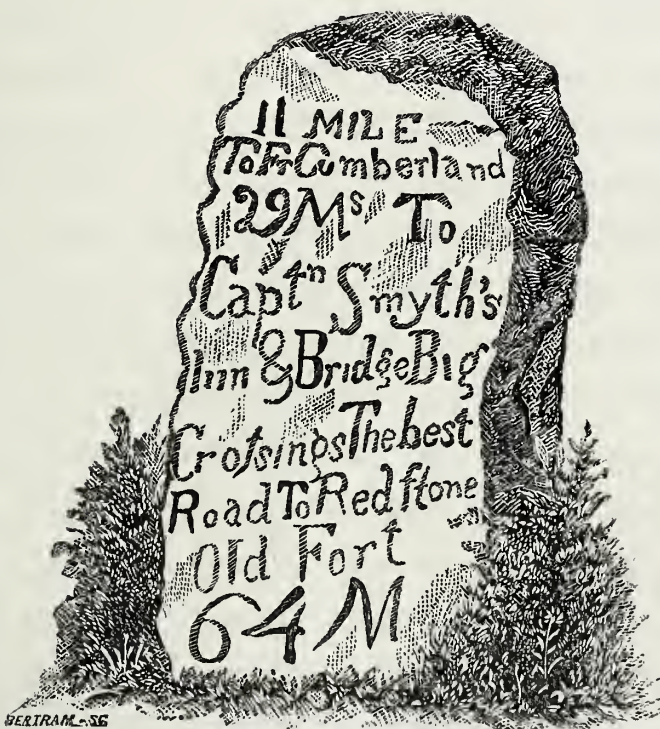 11 MILE
To Ft Cumberland
29 Ms To
Captn Smyth's
Inn & Bridge Big
Croſsings The best
Road To Redſtone
Old Fort
64 M
BERTRAM - SC